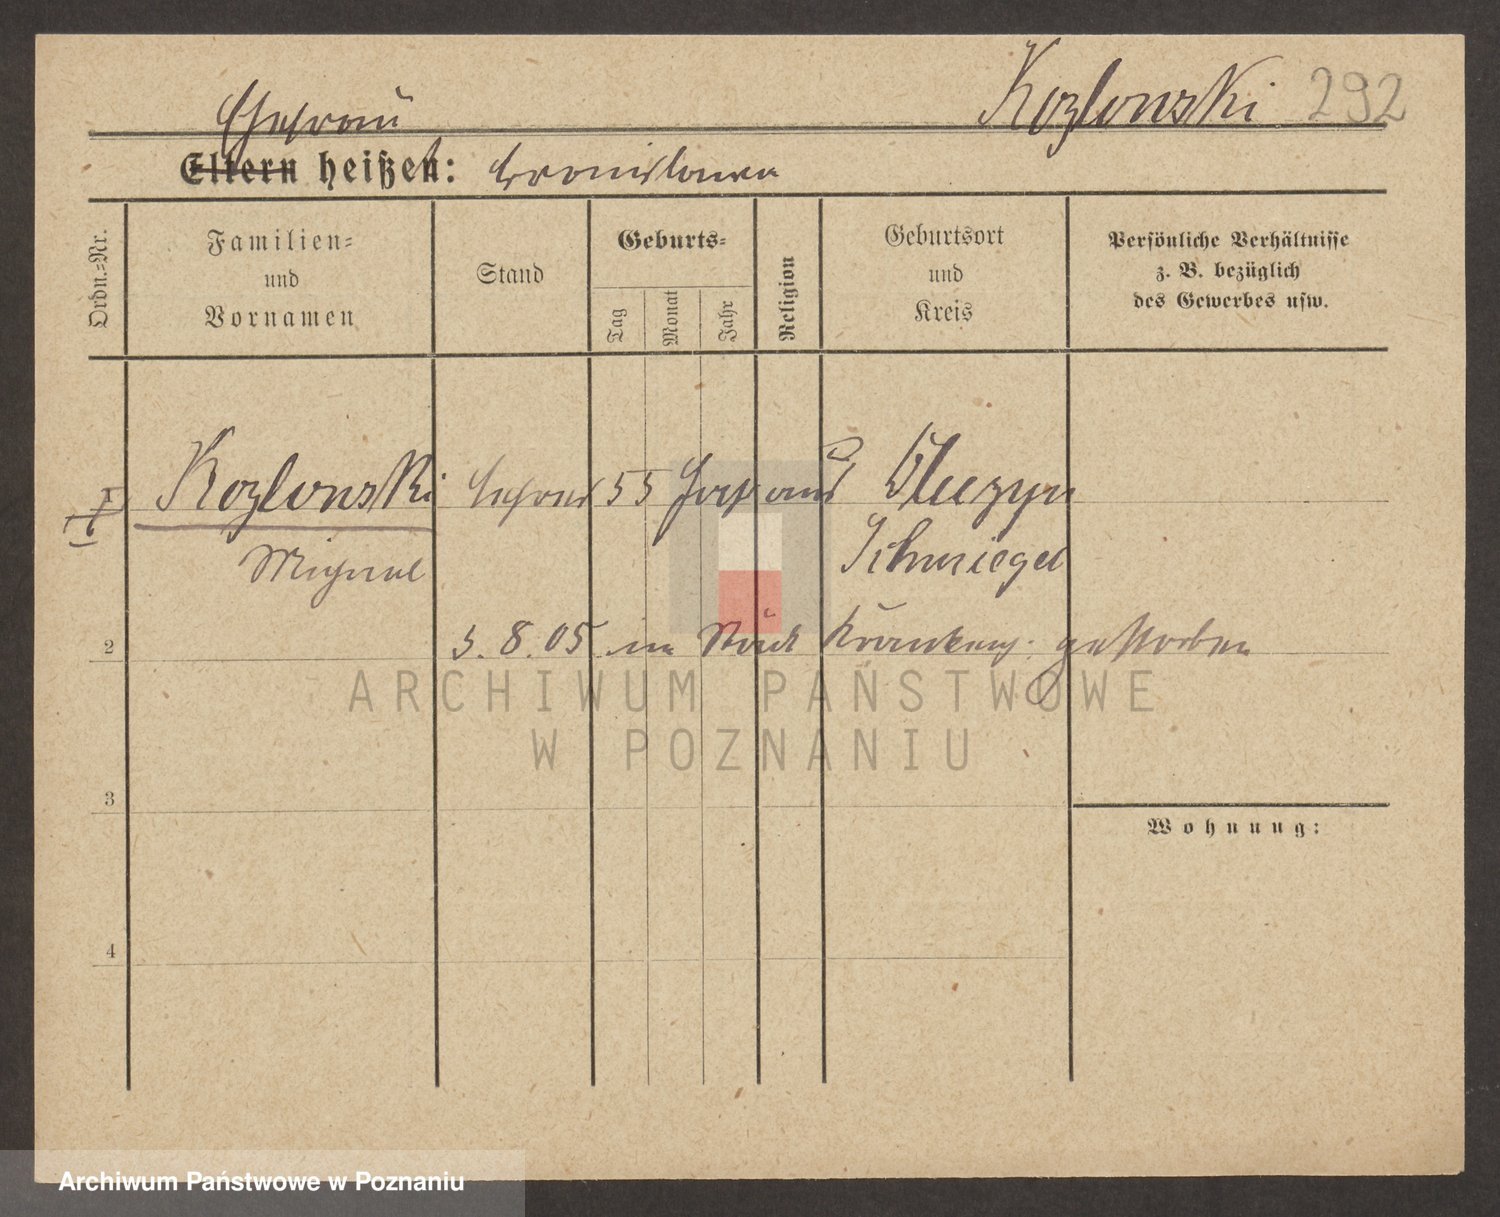 Kozlowski 292
Ehefrau
Eltern heißen: Bronislawa
Ordn.=Nr.
Familien=
und
Vornamen
Stand
Geburts=
Tag
Monat
Jahr
Religion
Geburtsort
und
Kreis
Persönliche Verhältnisse
z. B. bezüglich
des Gewerbes usw.
I Kozlowski Lehrer 55 Jahr aus
Michael Schmiegel
2 5. 8. 05 im Stadt Krankenh. gestorben
ARCHIWUM PAŃSTWOWE
W POZNANIU
3
Wohnung:
4
Archiwum Państwowe w Poznaniu